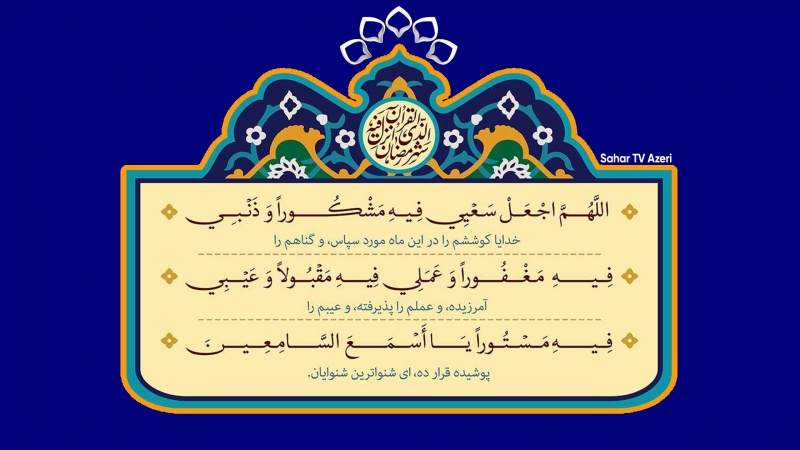 شهر رمضان الذی انزل فیه القرآن
Sahar TV Azeri
اللَّهُمَّ اجْعَلْ سَعْيِي فِيهِ مَشْكُوراً وَ ذَنْبِي
خدایا کوششم را در این ماه مورد سپاس، و گناهم را
فِيهِ مَغْفُوراً وَ عَمَلِي فِيهِ مَقْبُولاً وَ عَيْبِي
آمرزیده، و عملم را پذیرفته، و عیبم را
فِيهِ مَسْتُوراً يَا أَسْمَعَ السَّامِعِينَ
پوشیده قرار ده، ای شنواترین شنوایان.